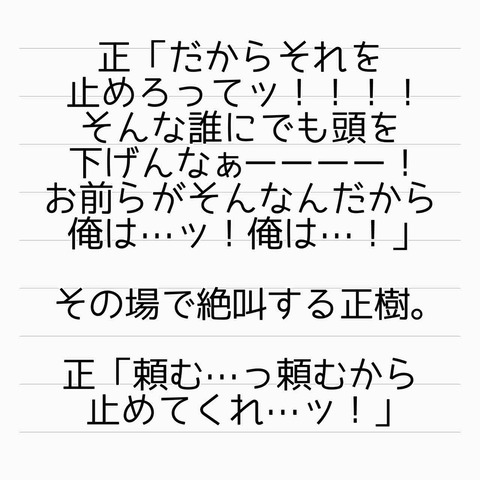 正「だからそれを
止めろってッ！！！！
そんな誰にでも頭を
下げんなぁーーーー！
お前らがそんなんだから
俺は…ッ！俺は…！」
その場で絶叫する正樹。
正「頼む…っ頼むから
止めてくれ…ッ！」